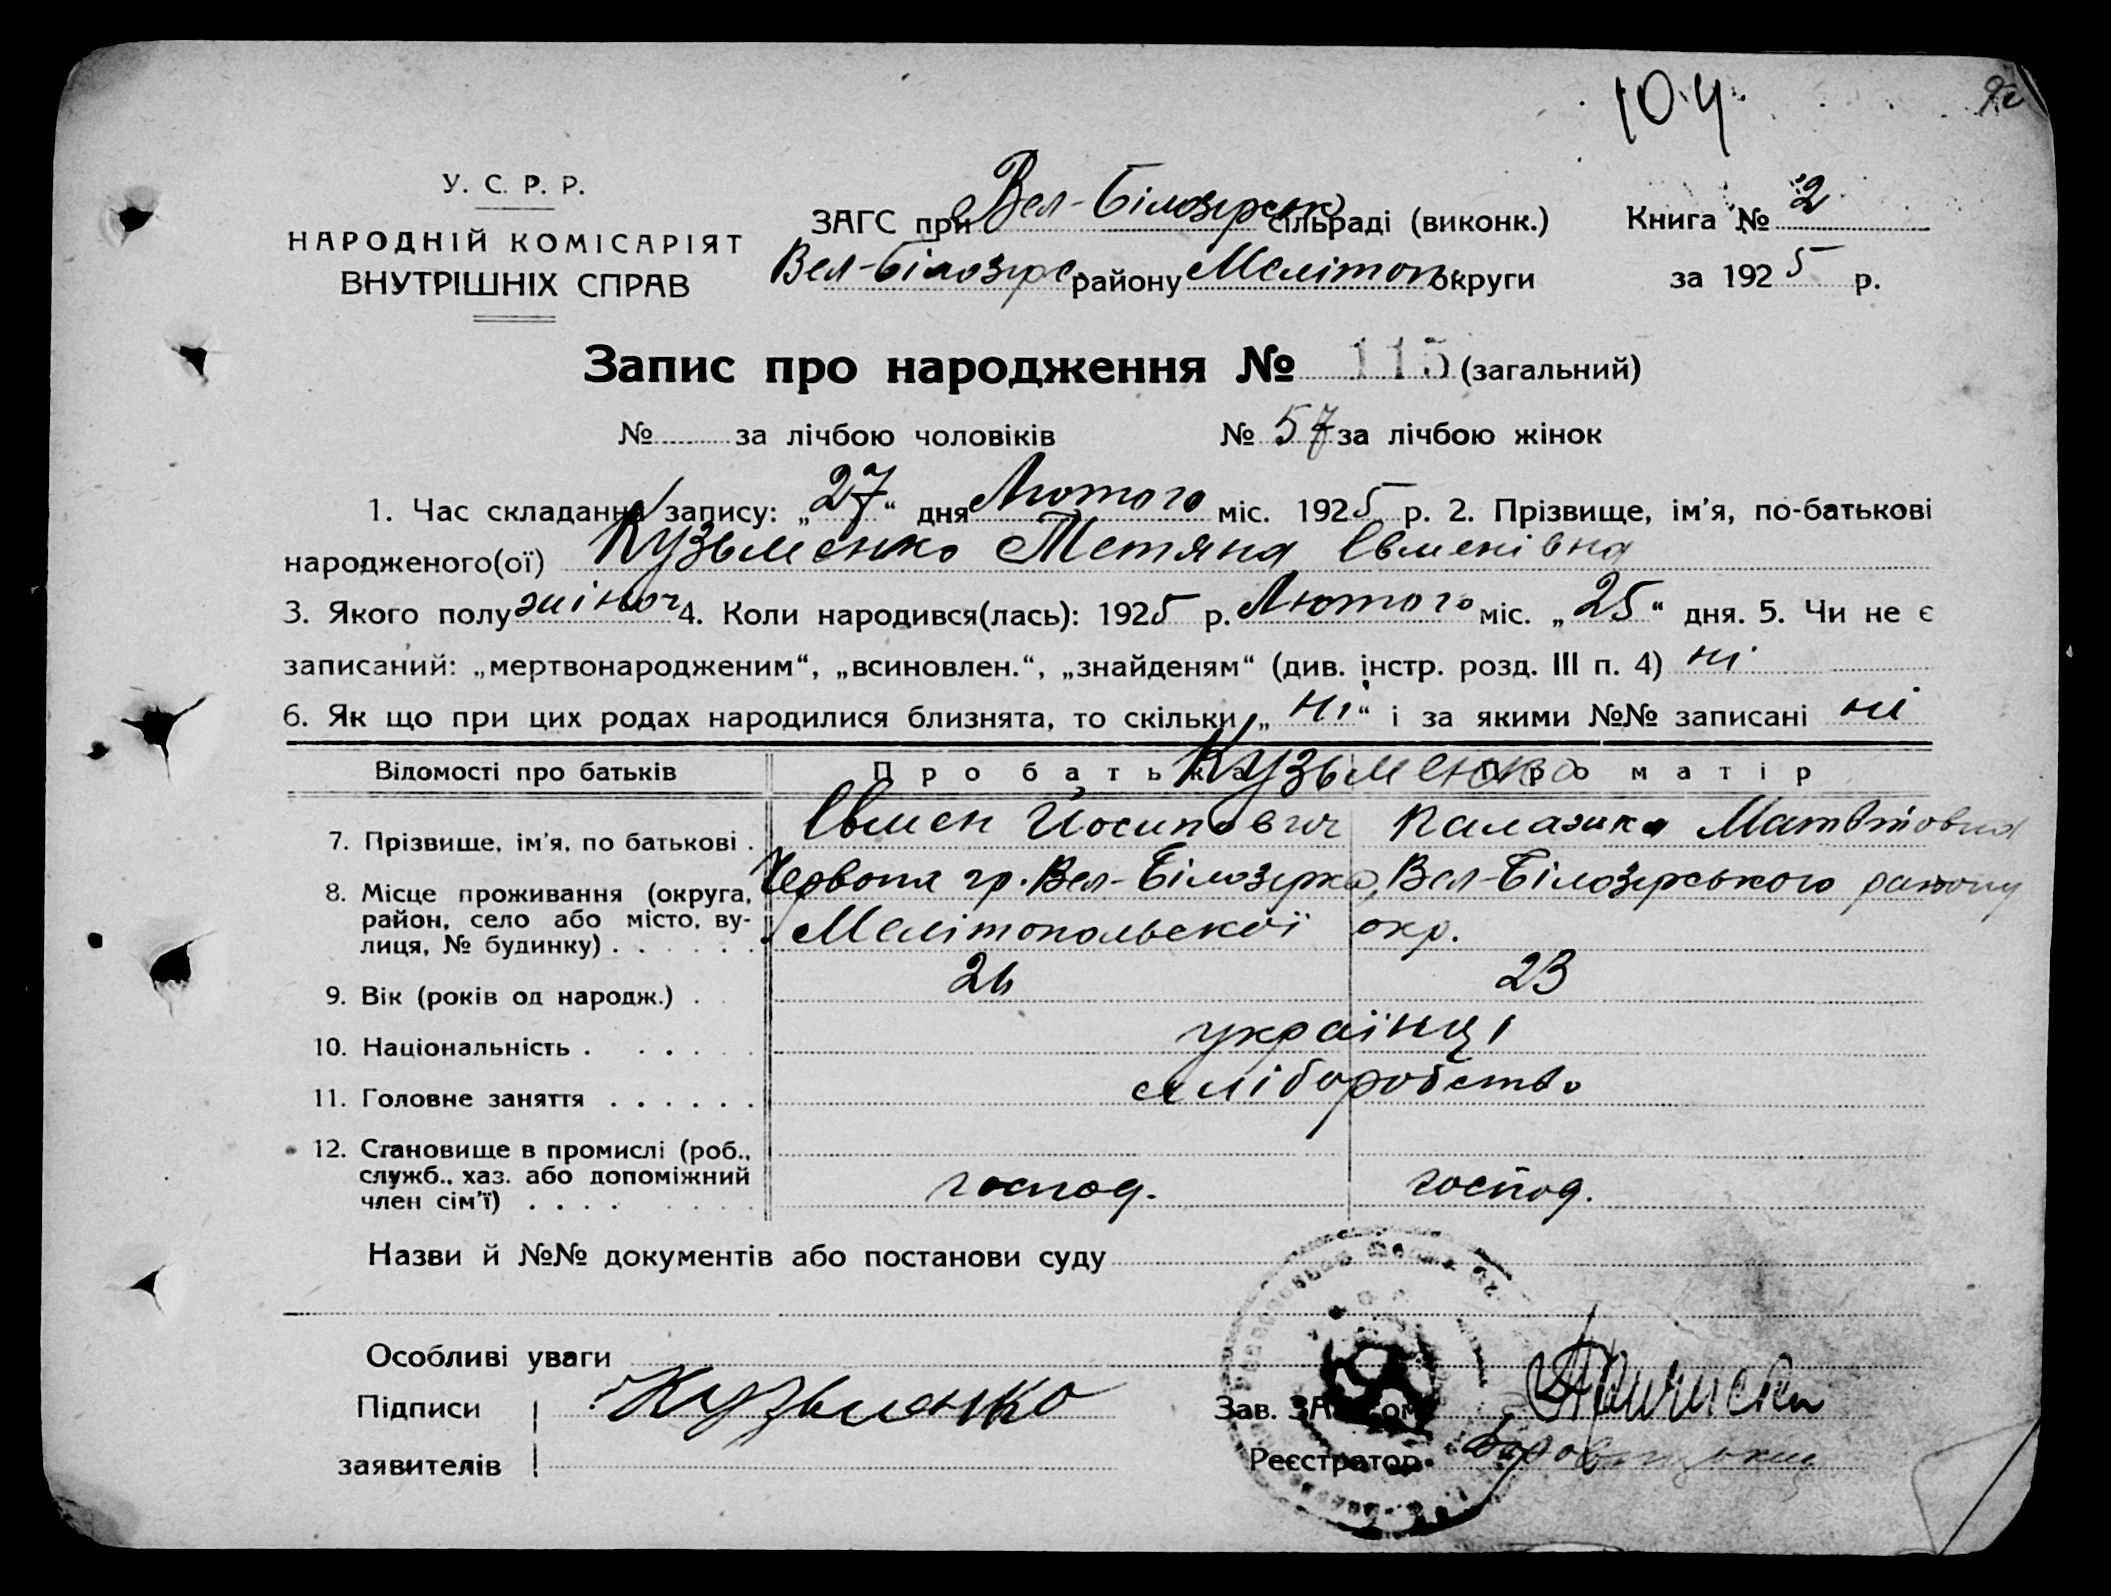 104
У. С. Р. Р.
НАРОДНІЙ КОМІСАРІЯТ
ВНУТРІШНІХ СПРАВ
ЗАГС при Вел-Білозерск сільраді (виконк.)
Вел-Білозерс. району Мелітоп. округи
Книга № 2
за 1925 р.
Запис про народження № 115 (загальний)
№ за лічбою чоловіків № 57 за лічбою жінок
1. Час складання запису: „27“ дня Лютого міс. 1925 р. 2. Прізвище, ім'я, по-батькові
народженого(ої) Кузьменко Тетяна Євменівна
3. Якого полу жіноч 4. Коли народився(лась): 1925 р. Лютого міс. „25“ дня. 5. Чи не є
записаний: „мертвонародженим“, „всиновлен.“, „знайденям“ (див. інстр. розд. III п. 4) ні
6. Як що при цих родах народилися близнята, то скільки „ні“ і за якими №№ записані ні
Відомості про батьків Про батька Про матір
Кузьменко
7. Прізвище, ім'я, по батькові . Євмен Йосипович Палажка Матвіовна
8. Місце проживання (округа, район, село або місто, вулиця, № будинку) . . . . . . Червона гр. Вел-Білозерка, Вел-Білозерського району
Мелітопольської окр.
9. Вік (років од народж.) . 26 23
10. Національність . . . . . українці
11. Головне заняття . . . . . . хліборобство
12. Становище в промислі (роб., служб., хаз. або допоміжний член сім'ї) . . . . господ. господ.
Назви й №№ документів або постанови суду
Особливі уваги
Підписи
заявителів
Кузьменко
Зав. ЗАГСом
Реєстратор